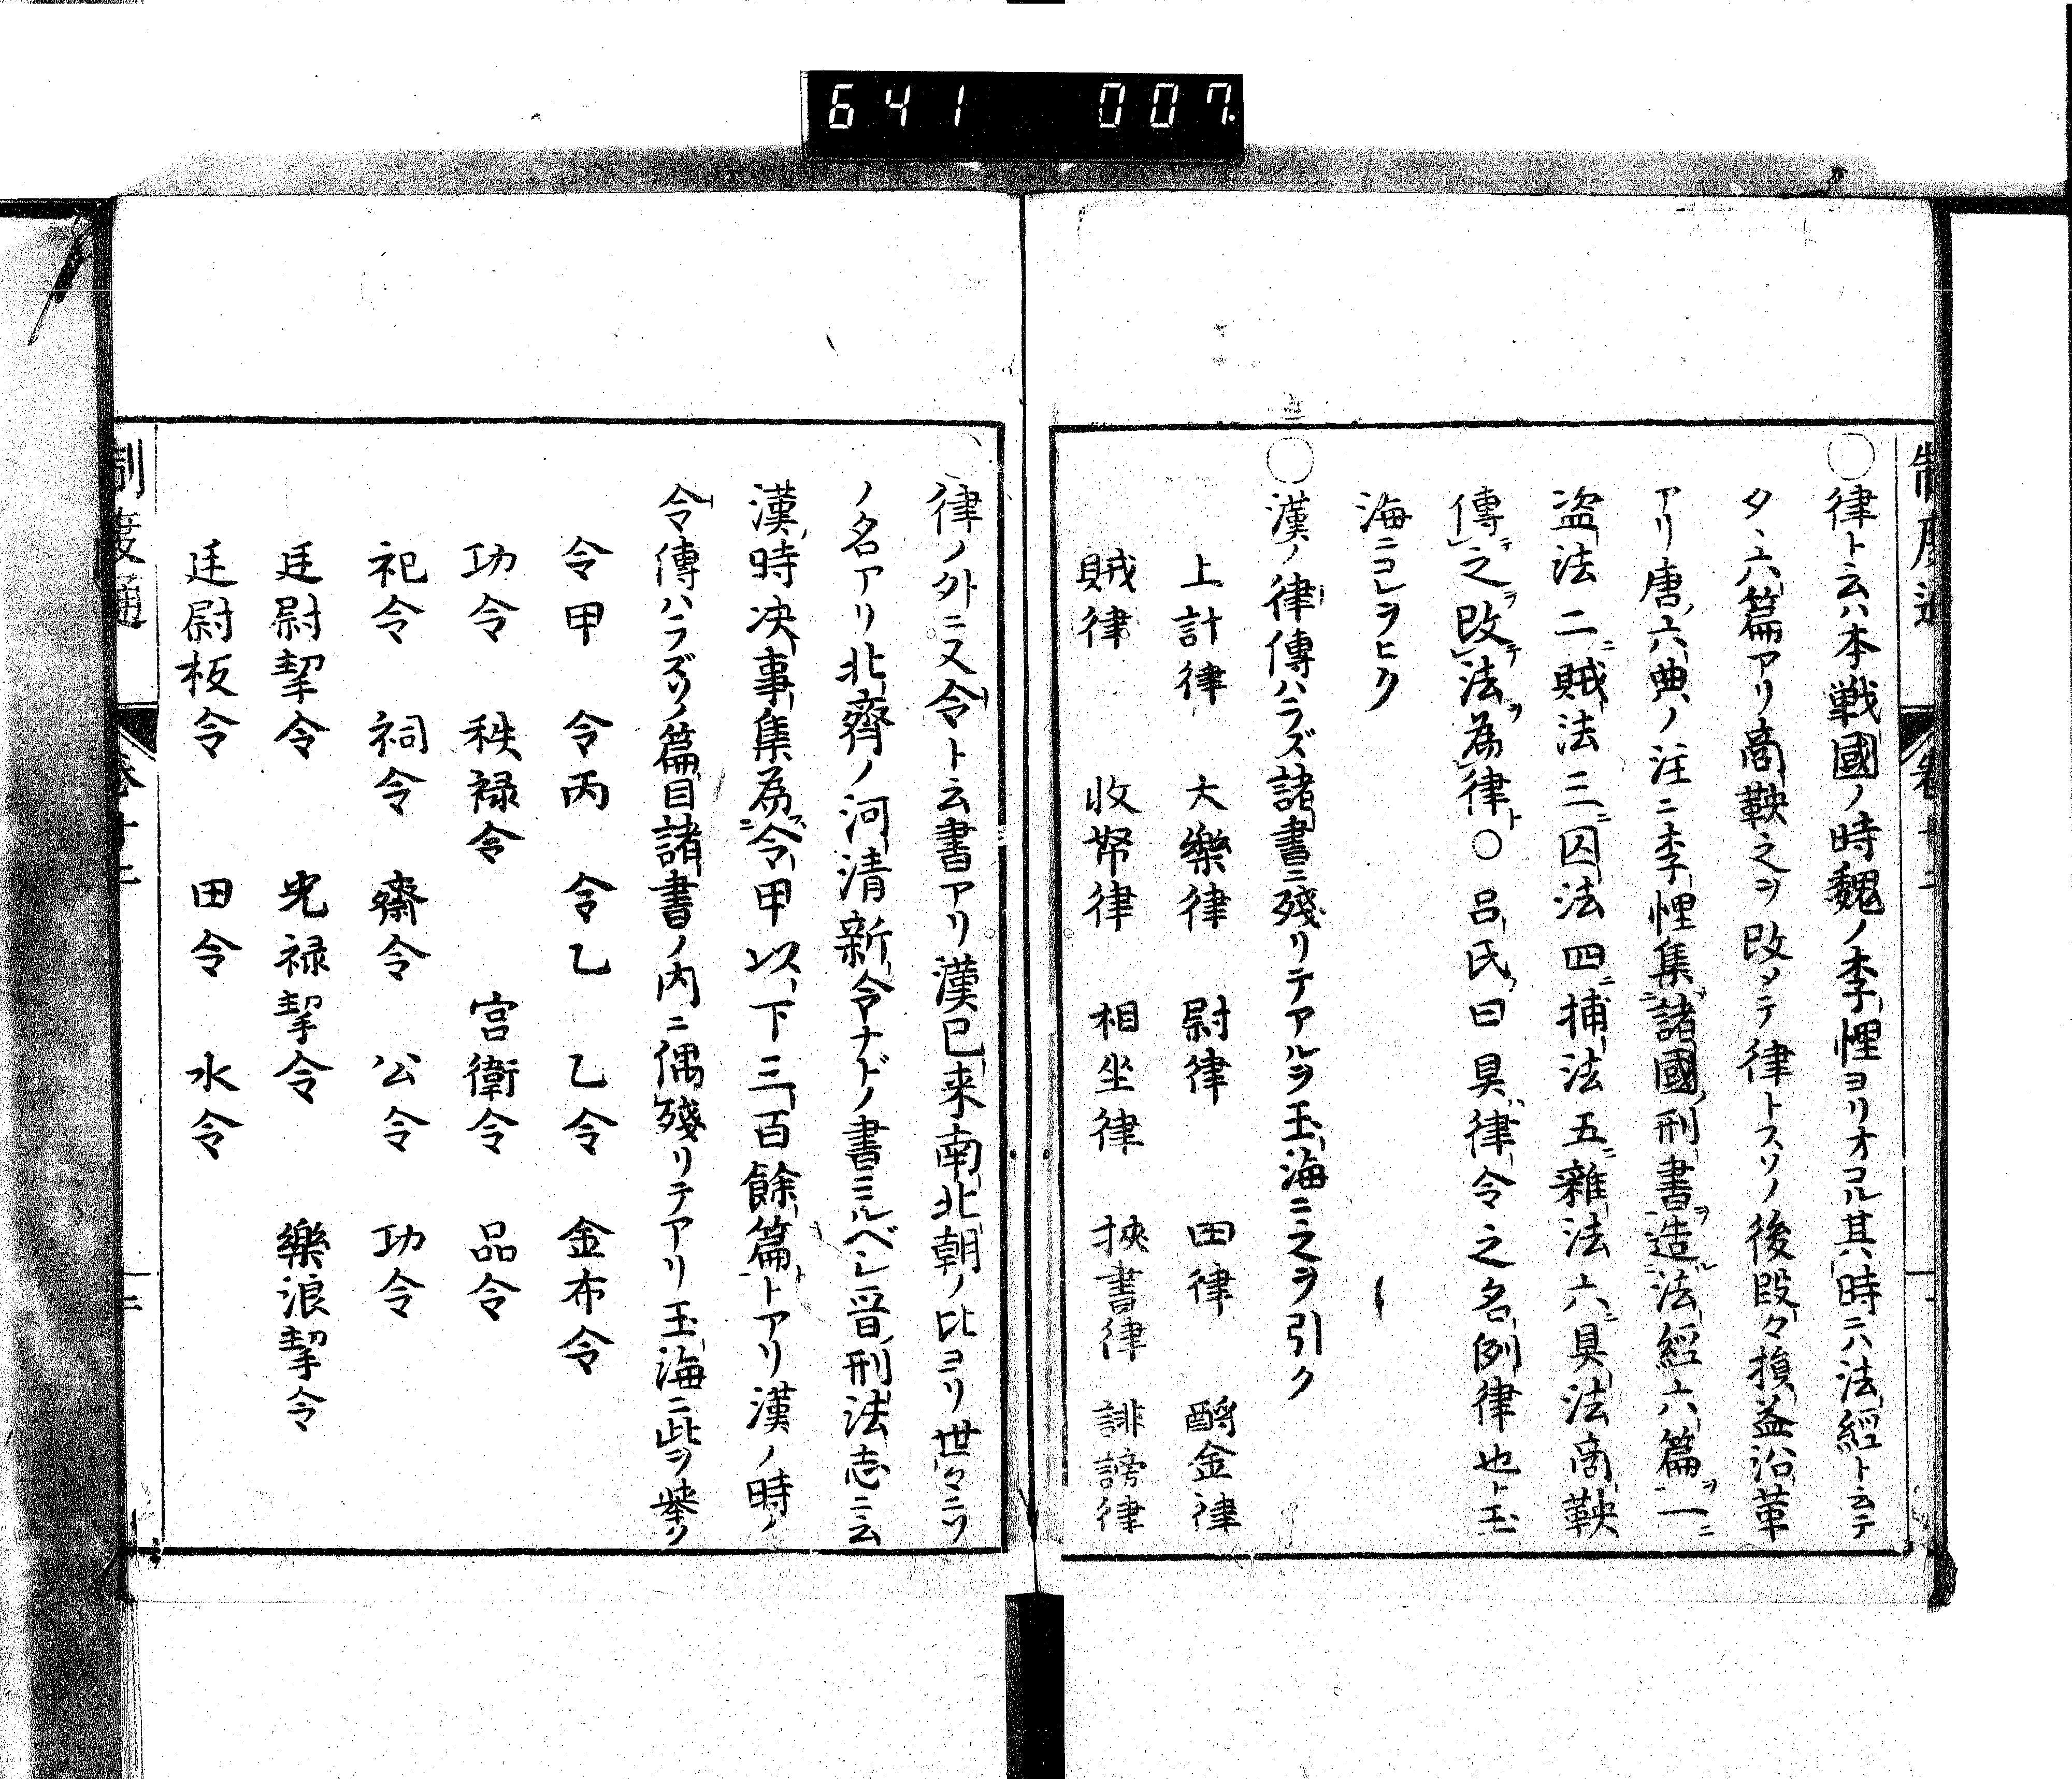 641 007
制度通 卷十二
○律ト云ハ本戦國ノ時魏ノ李悝ヨリオコル其時ニハ法經ト云テ
タヽ六篇アリ商鞅之ヲ改メテ律トスソノ後段々損益沿革
アリ唐六典ノ注ニ李悝集諸國刑書造法經六篇一ニ
盗法二ニ賊法三ニ囚法四ニ捕法五ニ雜法六ニ具法商鞅
傳之改法為律○呂氏曰具律令之名例律也ト玉
海ニコレヲヒク
○漢ノ律傳ハラズ諸書ニ殘リテアルヲ玉海ニ之ヲ引ク
上計律 大樂律 尉律 田律 酎金律
賊律 收帑律 相坐律 挾書律 誹謗律
律ノ外ニ又令ト云書アリ漢已来南北朝ノ比ヨリ世々ニソ
ノ名アリ北齊ノ河清新令ナドノ書ミルベシ晉刑法志ニ云
漢時決事集為令甲以下三百餘篇トアリ漢ノ時ノ
令傳ハラズソノ篇目諸書ノ内ニ偶殘リテアリ玉海ニ此ヲ挙ク
令甲 令丙 令乙 乙令 金布令
功令 秩禄令 宮衛令 品令
祀令 祠令 齋令 公令 功令
廷尉挈令 光禄挈令 樂浪挈令
廷尉板令 田令 水令
制度通 卷十二